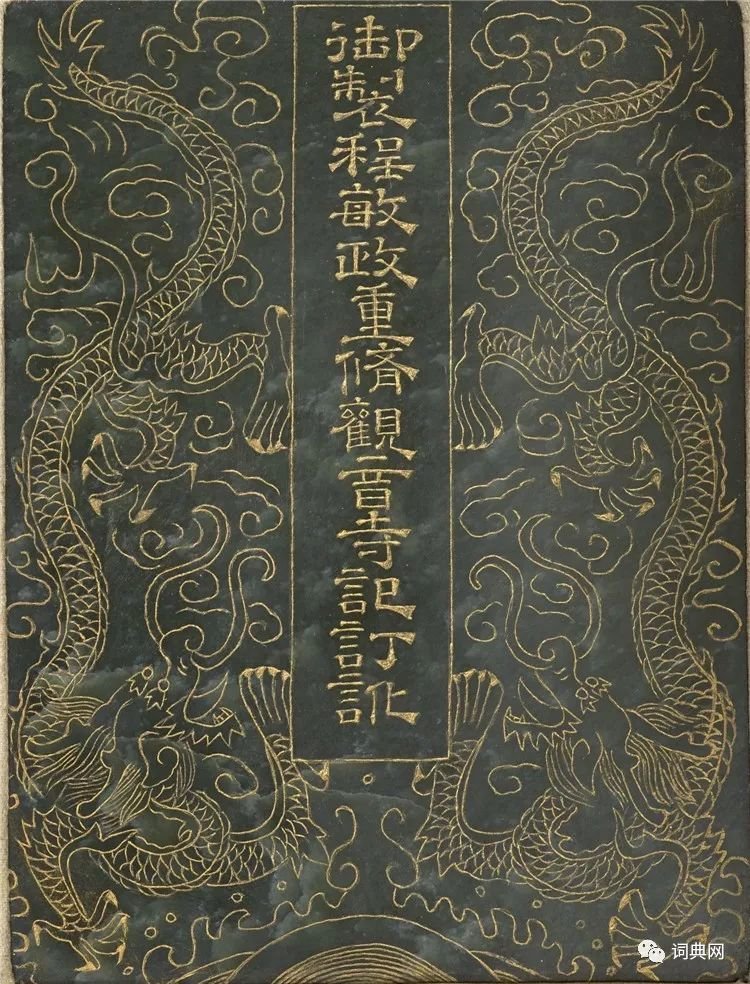 御製程敏政重脩觀音寺記訂訛
词典网